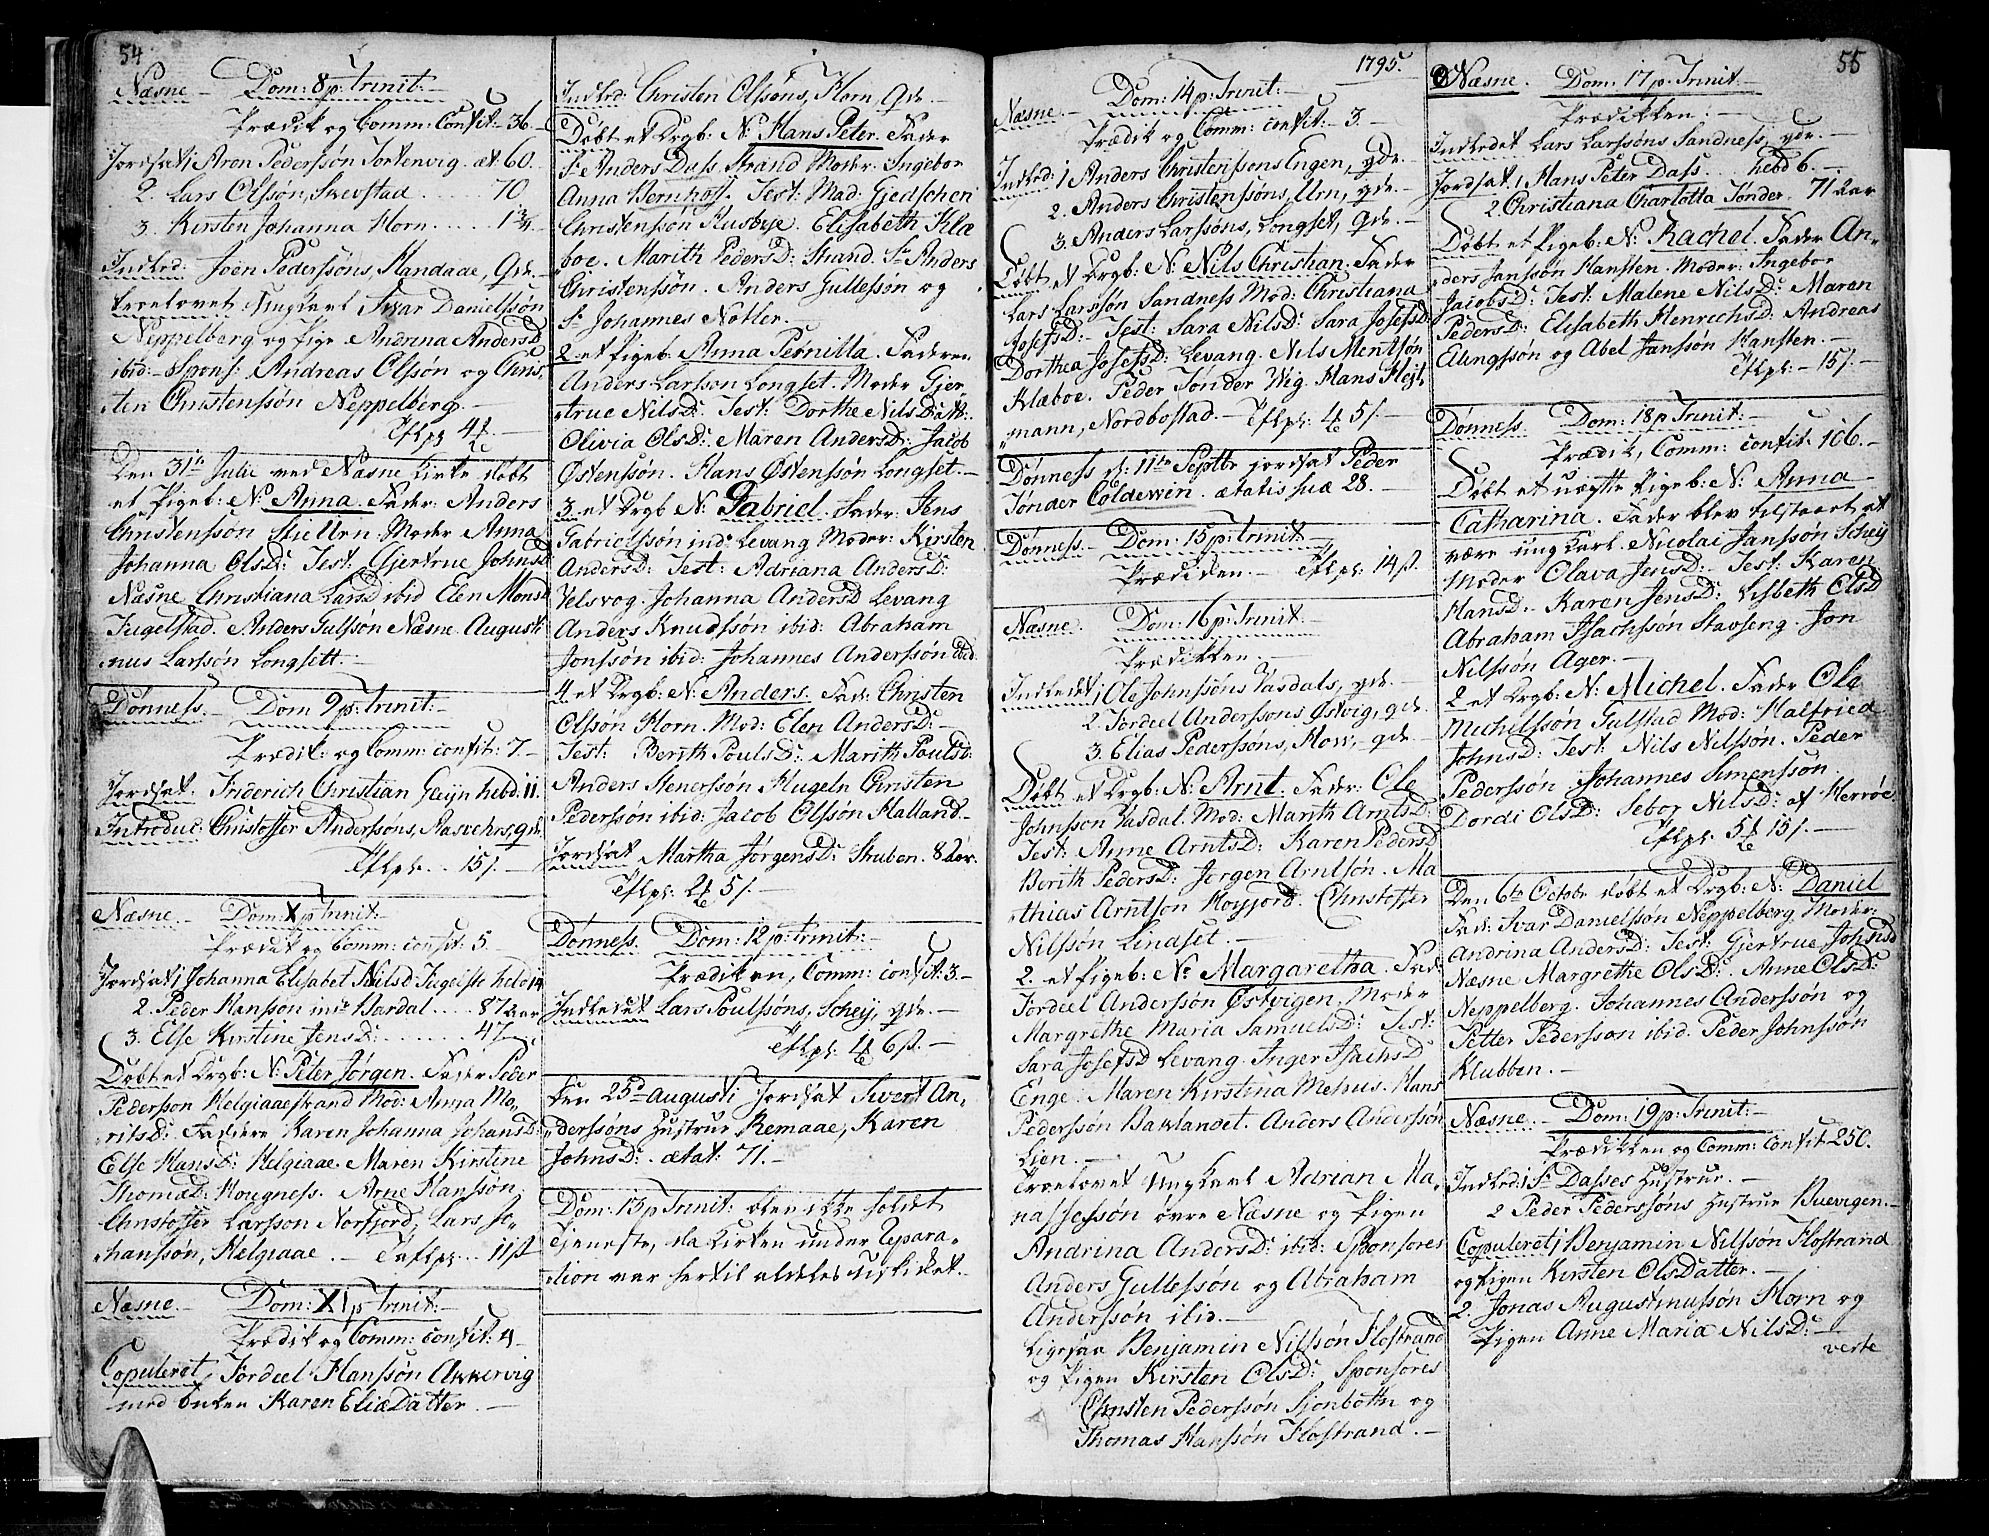 54
Næsne – Dom: 8 p: Trinit: –
Prædik og Comm: Confit: 36 –
Jordsat 1 Aron Pederssøn Tortenvig. æt. 60.
2. Lars Olssøn, Skevstad ..... 70
3. Kirsten Johanna Horn .....
Indled: Joen Pederssøns, Handaae, Qde. –
Troelovet Ungkarl Ivar Danielssøn
Neppelberg og Pige Andrina AndersD
ibid: – Spons: Andreas Olssøn og Chris,
ten Christenssøn Neppelberg. –
Tflpg 4
Den 31te Julii ved Næsne Kirke døbt
et Pigeb: N: Anna. Fader: Anders
Christenssøn Moder Anna
Johanna OlsD: Test: Gjertrue JohnsD
Næsne Christiana LarsD ibid Elen MonsD
Fugelstad. Anders Gulssøn Næsne Augusti
nus Larssøn Longsett: –
Dønness. – Dom 9 p: Trinit: –
Prædik: og Comm: confit: 7 –
Jordsat Friderich Christian hebd: 11.
Introduc: Christoffer Anderssøns, Aasvehrs, qd:
Tflpl .. 15 /. –
Næsne. – Dom: X p Trinit: –
Prædik og Comm: confit: 5.
Jordsat 1 Johanna Elisabet NilsD hebd 14
2. Peder Hanssøn ind: Bardal .... 87 Aar
3. Else Kirstine JensD: ....... 47 –
Døbt et Drgb: N: Peter Jørgen. Fader Peder
Pederssøn Helgiaaestrand Mod: Anna Mo,
ritsD: Faddere Karen Johanna JohansD:
Else HansD: Helgiaae. Maren Kirstine
ThomæD: Hougness. Arne Hanssøn
Christoffer Larssøn Norfjord, Lars Jo,
hanssøn, Helgiaae. – Taflpg ... 11 ß
Næsne. – Dom: XI p Trinit: –
Prædik og Comm: confit: 4 –
Copuleret Fordeel Hanssøn Akkervig
med Enken Karen EliæDatter. –
Indled: Christen Olssøns, Horn, Qde. –
Døbt et Drgb: N: Hans Peter. Fader
Sr Anders Dass Strand Moder: Ingebor
Anna Bernhoft. Test: Mad: Gjedschen
Christenssøn Husbye. Elisabeth Klæ
boe. Marith PedersD: Strand. Sr Anders
Christenssøn. Anders Gullessøn og
Sr Johannes Nøtler. –
2 et Pigeb: Anna Pernilla. Faderen
Anders Larssøn Longset. Moder Gjer
true NilsD: Test: Dorthe NilsDatt:
Olivia OlsD: Maren AndersD: Jacob
Østenssøn. Hans Østenssøn Longset. –
3 et Drgb N: Gabriel. Fader: Jens
Gabrielssøn ind: Levang Moder: Kirsten
AndersD: Test: Adriana AndersD:
Velsvog. Johanna AndersD Levang
Anders Knudssøn ibid: Abraham
Jonssøn ibid: Johannes Anderssøn ibid.
4 et Drgb: N: Anders. Fad: Christen
Olssøn Horn. Mod: Elen AndersD: –
Test: Berith PoulsD: Marith PoulsD:
Anders Henerssøn Hugeln Christen
Pederssøn ibid: Jacob Olssøn Halland. –
Jordsat Martha JørgensD: Struben. 8 Aar.
Tflpl: 2 5 /. –
Dønness. Dom: 12 p: Trinit: –
Prædiken, Comm: confit: 3 –
Indledet Lars Poulssøns, Schey, qde. –
Tflpl: 4 6 ß. –
Den 25de Augusti Jordsat Sivert An,
derssøns Hustrue Remaae, Karen
JohnsD: . ætat: 71. –
Dom: 13 p Trinit: blev ikke holdet
Tjeneste, da Kirken under Repara,
tion var hertil aldeles uskikket. –
1795.
Næsne. – Dom: 14 p: Trinit: –
Prædik og Comm: confit: 3 –
Indled: 1 Anders Christenssøns Engen, qde. –
2. Anders Christenssøns, Urn, qde. –
3. Anders Larssøns, Longset, qde. –
Døbt et Drgb: N: Nils Christian. Fader
Lars Larssøn Sandness Mod: Christiana
JosefsD: Test: Sara NilsD: Sara JosefsD:
Dorthea JosefsD: Levang. Nils Mentssøn
Klæboe. Peder Tønder Wig. Hans Hejt,
mann, Nordbostad. – Tflpl: 4 5 /. –
Dønness d: 11te Septbr jordsat Peder
Tønder Coldewin. ætatis suæ 28. –
Dønness – Dom: 15 p: trinit
Prædiken. – Tflpl: 14 ß.
Næsne. Dom: 16 p: Trinit:
Prædikken. –
Indledet 1 Ole Johnssøns Dasdals, qde. –
2. Fordeel Anderssøns Østvig, qd.
3. Elias Pederssøns, qde. –
Døbt et Drgb: N: Arnt. Fader: Ole
Johnssøn Dasdal. Mod: Marith ArntsD:
Test: Anne ArntsD: Karen PedersD
Berith PedersD: Jørgen Arntsøn. Ma
thias Arntsøn Høyjord. Christoffer
Nilssøn Lindset. –
2. et Pigeb: N: Margaretha. Fad:
Fordeel Anderssøn Østvigen, Moder
Margrethe Maria SamuelsD: Test:
Sara JosefsD Levang. Inger IsachsD
Enge. Maren Kirstina Mehus. Hans
Pederssøn Baklandet. Anders Anderssøn
Lien. –
Troelovet Ungkarl Adrian Ma,
nassessøn øvre Næsne og Pigen
Andrina AndersD: ibid: Sponsores
Anders Gullessøn og Abraham
Anderssøn ibid. –
Ligesaa Benjamin Nilssøn Flostrand
og Pigen Kirsten OlsD: Sponsores
Christen Pederssøn Sjonbotn og
Thomas Hanssøn Flostrand. –
55
Næsne. Dom: 17 p: Trinit: –
Prædikken: –
Indledet Lars Larssøns Sandness, qde. –
Jordsat 1. Hans Peter Dass ... hebd 6. –
2. Christiana Charlotta Tønder. 71 Aar
Døbt et Pigeb: N: Rachel. Fader An,
ders Janssøn Hansten. Moder: Ingebor
JacobsD: Test: Malene NilsD: Maren
PedersD: Elisabeth HenrichsD: Andreas
Elingssøn og Abel Janssøn Hansten. –
Tflpl: – 15 /. –
Dønness. Dom: 18 p Trinit: –
Prædik, Comm: confit: 106. –
Døbt et uægte Pigeb: N: Anna
Catharina. Fader blev tilstaaet at
være ung Karl. Nicolai Janssøn Schey
Moder Olava JensD: – Test: Karen
HansD: Karen JensD: Lisbeth OlsD
Abraham Isachssøn Stavseng. Jon
Nilssøn Ager. –
2 et Drgb: N: Michel. Fader Ole
Michelssøn Gulstad Mod: Halfried
JohnsD: Test: Nils Nilssøn. Peder
Pederssøn Johannes Simenssøn.
Dordi OlsD: Sebor NilsD: af Herrøe
Tflpl: 5 15 /. –
Den 6te Octobr døbt et Drgb: N: Daniel
Fad: Ivar Danielssøn Neppelberg Moder:
Andrina AndersD: Test: Gjertrue JohnsD
Næsne Margrethe OlsD: Anne OlsD:
Neppelberg. Johannes Anderssøn og
Petter Pederssøn ibid. Peder Johnssøn
Klubben. –
Næsne. – Dom: 19 p: Trinit: –
Prædikken og Comm: confit 250.
Indled: 1 Sr Dasses Hustrue. –
2 Peder Pederssøns Hustrue Buevigen. –
Copuleret 1 Benjamin Nilssøn Flostrand
og Pigen Kirsten OlsDatter. –
2. Jonas Augustinussøn Horn og
Pigen Anne Maria NilsD: –
verte